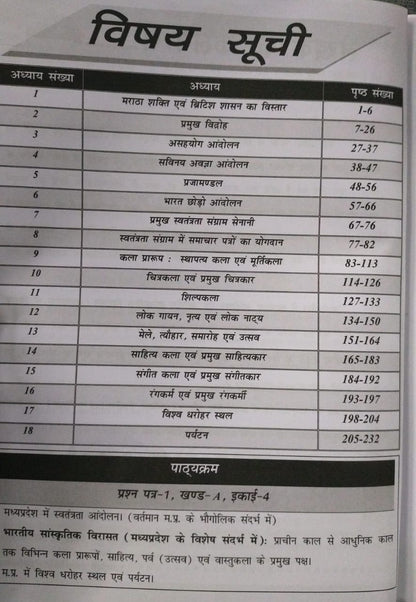 विषय सूची
अध्याय संख्या अध्याय पृष्ठ संख्या
1 मराठा शक्ति एवं ब्रिटिश शासन का विस्तार 1-6
2 प्रमुख विद्रोह 7-26
3 असहयोग आंदोलन 27-37
4 सविनय अवज्ञा आंदोलन 38-47
5 प्रजामण्डल 48-56
6 भारत छोड़ो आंदोलन 57-66
7 प्रमुख स्वतंत्रता संग्राम सेनानी 67-76
8 स्वतंत्रता संग्राम में समाचार पत्रों का योगदान 77-82
9 कला प्रारूप : स्थापत्य कला एवं मूर्तिकला 83-113
10 चित्रकला एवं प्रमुख चित्रकार 114-126
11 शिल्पकला 127-133
12 लोक गायन, नृत्य एवं लोक नाट्य 134-150
13 मेले, त्यौहार, समारोह एवं उत्सव 151-164
14 साहित्य कला एवं प्रमुख साहित्यकार 165-183
15 संगीत कला एवं प्रमुख संगीतकार 184-192
16 रंगकर्म एवं प्रमुख रंगकर्मी 193-197
17 विश्व धरोहर स्थल 198-204
18 पर्यटन 205-232
पाठ्यक्रम
प्रश्न पत्र-1, खण्ड-A, इकाई-4
मध्यप्रदेश में स्वतंत्रता आंदोलन। (वर्तमान म.प्र. के भौगोलिक संदर्भ में)
भारतीय सांस्कृतिक विरासत (मध्यप्रदेश के विशेष संदर्भ में): प्राचीन काल से आधुनिक काल
तक विभिन्न कला प्रारूपों, साहित्य, पर्व (उत्सव) एवं वास्तुकला के प्रमुख पक्ष।
म.प्र. में विश्व धरोहर स्थल एवं पर्यटन।